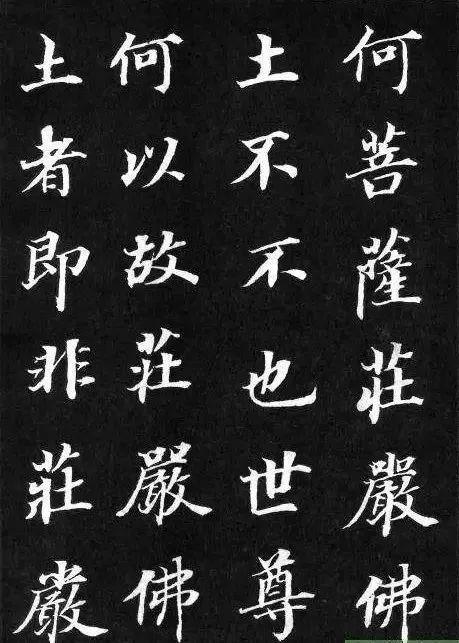 何菩薩莊嚴佛
土不不也世尊
何以故莊嚴佛
土者即非莊嚴